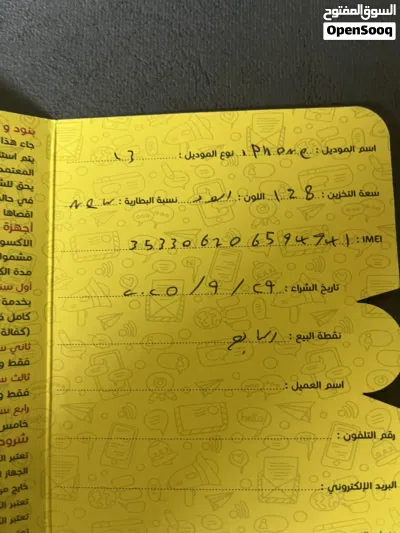 السوق المفتوح
OpenSooq
اسم الموديل : iPhone نوع الموديل : ١٣
سعة التخزين : 128 اللون : اسود نسبة البطارية : New
IMEI : 353306206594741
تاريخ الشراء : ٢٩ / ٩ / ٢٠٢٥
نقطة البيع : الرابح
اسم العميل :
رقم التلفون :
البريد الإلكتروني :
بنود و
جاء هذا
يتم است
المعتمد
يحق للش
في حال
اقصاها
أجهزة
الاكسو
مشمول
مدة الك
أول سن
بخدمة
كامل ق
(كفالة
ثاني س
فقط و
ثالث س
فقط و
رابع س
خامس
شروط
تعتبر ال
الجهاز ا
خارج مر
تعتبر ال
تعتبر ال
hello!